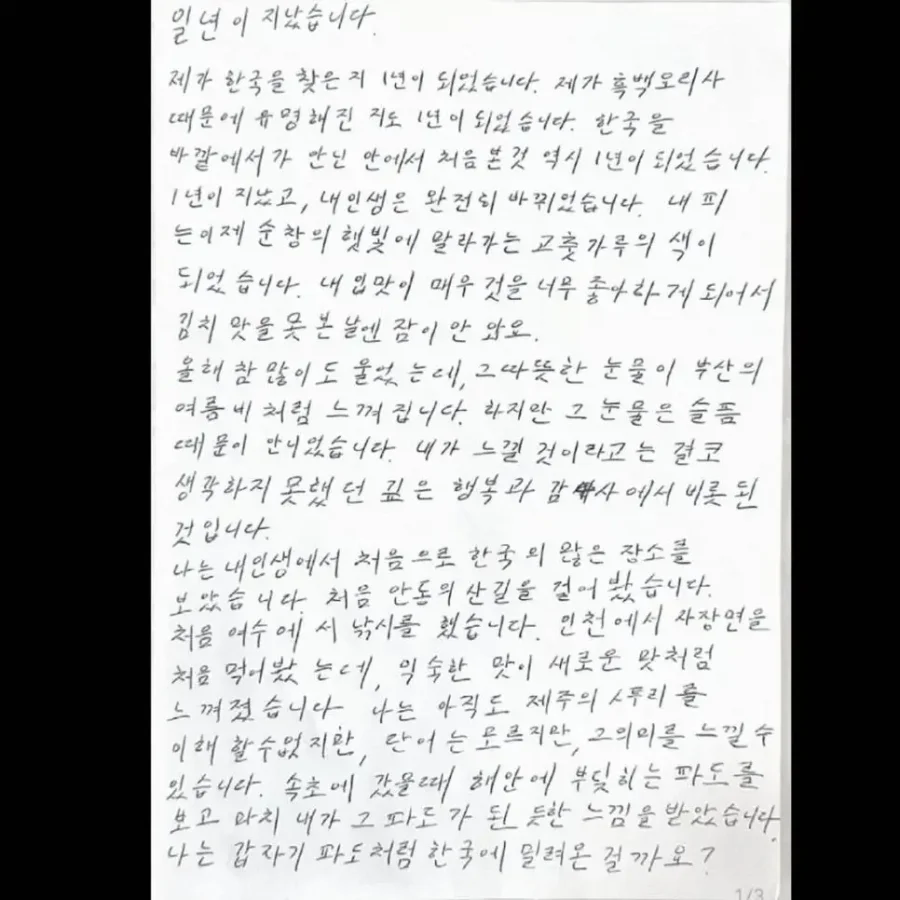 일년이 지났습니다.
제가 한국을 찾은 지 1년이 되었습니다. 제가 흑백요리사
때문에 유명해진 지도 1년이 되었습니다. 한국을
바깥에서가 안닌 안에서 처음본것 역시 1년이 되었습니다.
1년이 지났고, 내인생은 완전히 바뀌었습니다. 내 피
는이제 순창의 햇빛에 말라가는 고춧가루의 색이
되었습니다. 내 입맛이 매우 것을 너무 좋아하게 되어서
김치 맛을 못 본 날엔 잠이 안 와요.
올해 참 많이도 울었는데, 그따뜻한 눈물이 부산의
여름비처럼 느껴집니다. 하지만 그 눈물은 슬픔
때문이 안니었습니다. 내가 느낄 것이라고는 결코
생각하지 못했던 깊은 행복과 감사에서 비롯된
것입니다.
나는 내인생에서 처음으로 한국의 많은 장소를
보았습니다. 처음 안동의 산길을 걸어 봤습니다.
처음 여수에서 낚시를 했습니다. 인천에서 자장면을
처음 먹어봤는데, 익숙한 맛이 새로운 맛처럼
느껴졌습니다 나는 아직도 제주의 사투리를
이해 할수없지만, 단어는 모르지만, 그의미를 느낄 수
있습니다. 속초에 갔을때 해안에 부딪히는 파도를
보고 마치 내가 그 파도가 된 듯한 느낌을 받았습니다.
나는 갑자기 파도처럼 한국에 밀려온 걸까요?
1/3